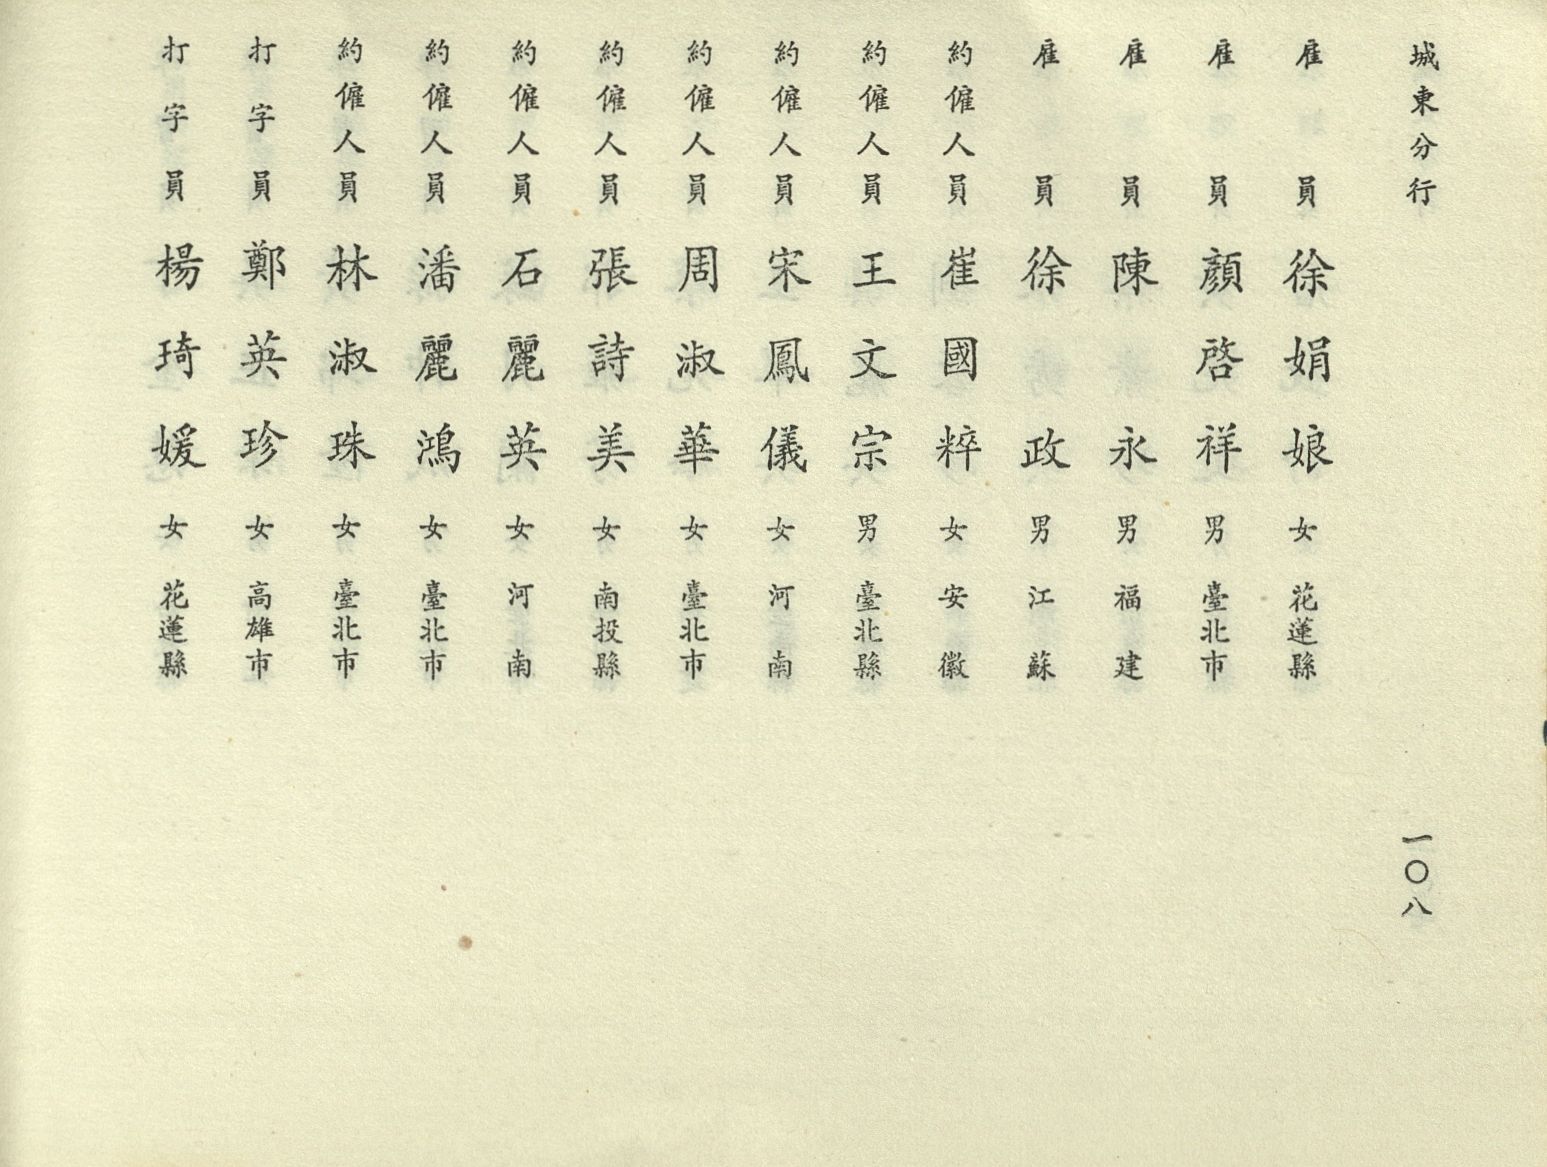 城東分行
雇員 徐娟娘 女 花蓮縣
雇員 顏啓祥 男 臺北市
雇員 陳永 男 福建
雇員 徐政 男 江蘇
約僱人員 崔國粹 女 安徽
約僱人員 王文宗 男 臺北縣
約僱人員 宋鳳儀 女 河南
約僱人員 周淑華 女 臺北市
約僱人員 張詩美 女 南投縣
約僱人員 石麗英 女 河南
約僱人員 潘麗鴻 女 臺北市
約僱人員 林淑珠 女 臺北市
打字員 鄭英珍 女 高雄市
打字員 楊琦媛 女 花蓮縣
一〇八